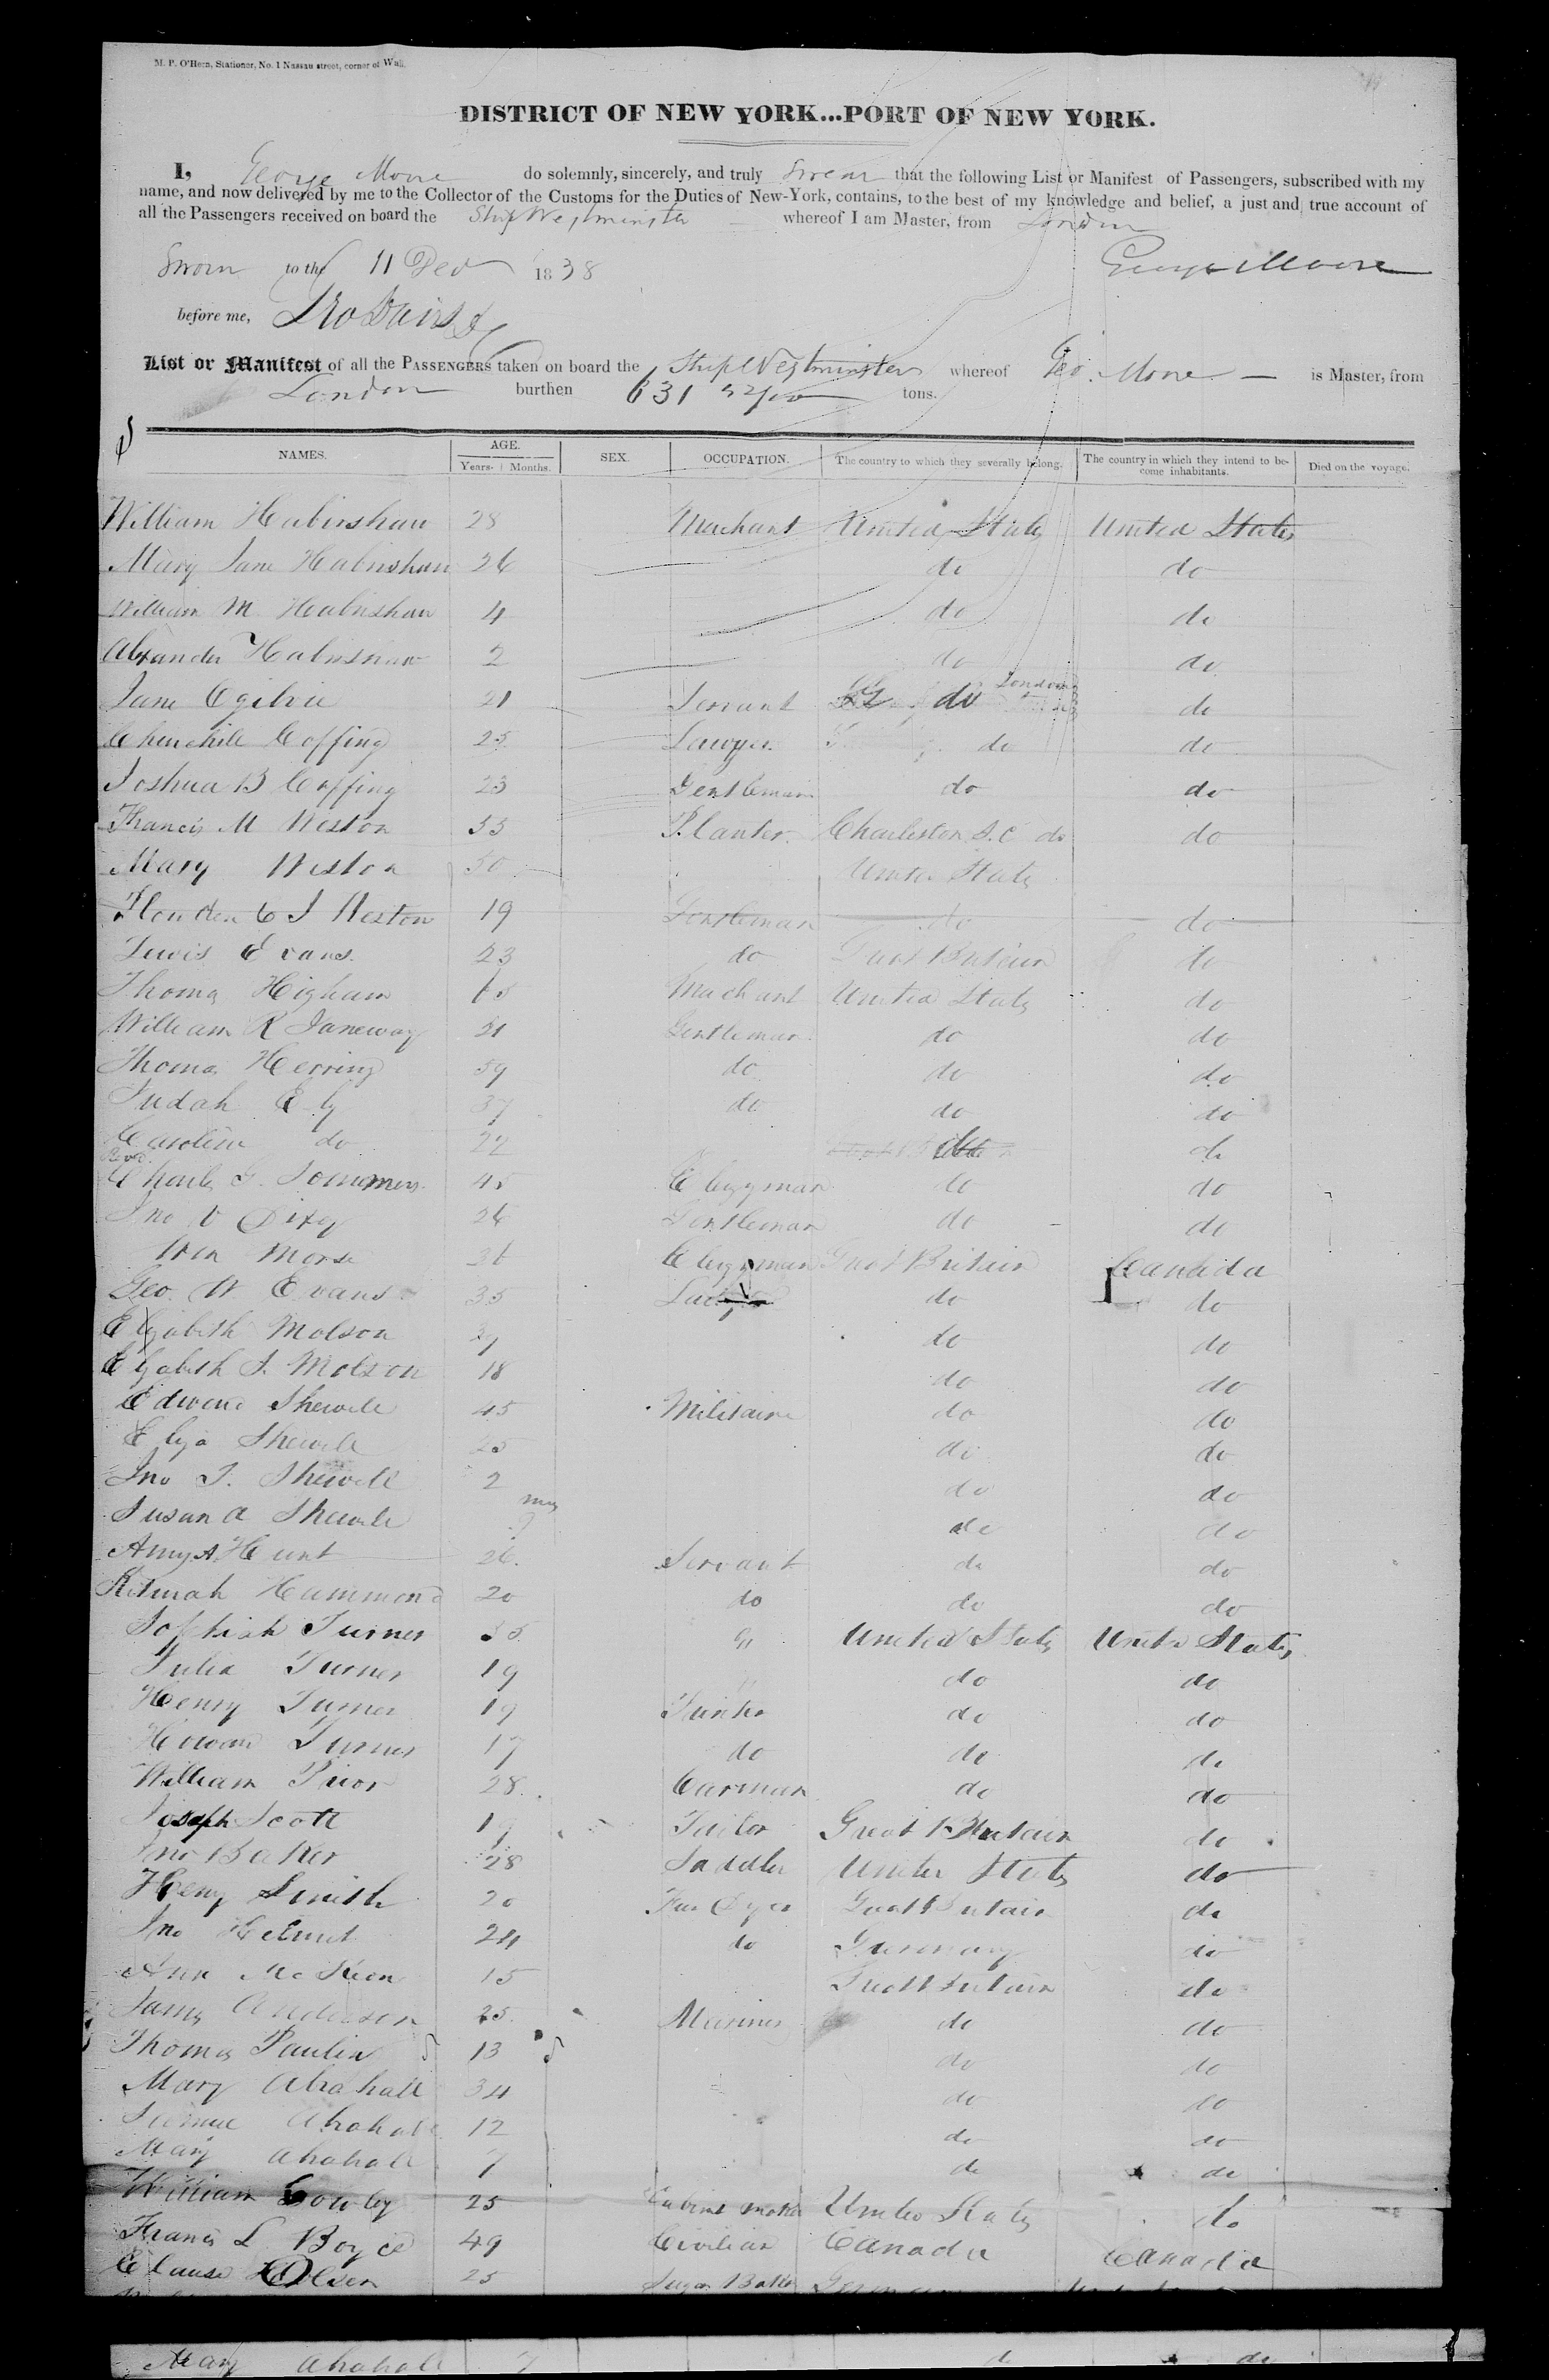 M. P. O'Hern, Stationer, No. 1 Nassau street, corner of Wall.
DISTRICT OF NEW YORK...PORT OF NEW YORK.
I, George Moore do solemnly, sincerely, and truly Swear that the following List or Manifest of Passengers, subscribed with my
name, and now delivered by me to the Collector of the Customs for the Duties of New-York, contains, to the best of my knowledge and belief, a just and true account of
all the Passengers received on board the Ship Westminster whereof I am Master, from London
Sworn to the 11 Dec 1838 George Moore
before me,
List or Manifest of all the PASSENGERS taken on board the Ship Westminster whereof Geo. Moore is Master, from
London burthen 631 tons.
NAMES. AGE. Years. Months. SEX. OCCUPATION. The country to which they severally belong. The country in which they intend to become inhabitants. Died on the voyage.
William Habirshaw 28 Merchant United States United States
Mary Jane Habirshaw 26 do do
William M Habirshaw 4 do do
Alexander Habirshaw 2 do do
Jane Ogilvie 21 Servant do do
Churchill Coffing 25 Lawyer do do
Joshua B Coffing 23 Gentleman do do
Francis M Weston 55 Planter Charleston S.C do do
Mary Weston 50 United States
Plowden C J Weston 19 Gentleman do do
Lewis Evans 23 do Great Britain do
Thomas Higham 65 Merchant United States do
William R Janeway 21 Gentleman do do
Thomas Herring 59 do do do
Judah Ely 37 do do do
Caroline do 22 do do
Revd Charles G. Sommers 45 Clergyman do do
Jno V Dixey 26 Gentleman do do
Wm Morse 36 Clergyman Great Britain Canada
Geo. W Evans 35 do do
Elizabeth Molson do do
Elizabeth S. Molson 18 do do
Edward Shewell 45 Militaire do do
Eliza Shewell 25 do do
Jno T. Shewell 2 do do
Susan A Shewell mos do do
Amy A. Hunt 26 Servant do do
Hammond 20 do do do
Sophiah Turner 55 " United States United States
Julia Turner 19 do do
Henry Turner 19 do do
Howard Turner 17 do do do
William Prior 28 Carman do do
Joseph Scott 19 Tailor Great Britain do
Jno Baker 28 Saddler United States do
Henry Smith 20 Fur Dyer Great Britain do
Jno Helmut 24 do Germany do
Ann McKeen 15 Great Britain do
James Anderson 25 Mariner do do
Thomas Paulin 13 do do
Mary Abrahall 34 do do
Abrahall 12 do do
Mary Abrahall 7 do do
William Cowley 25 Cabinet maker United States do
Francis L Boyce 49 Civilian Canada Canada
Clause Olsen 25 Sugar Baker
Mary Abrahall 7 do do